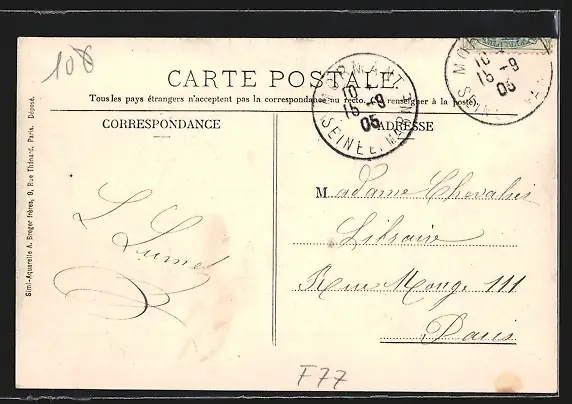 108
CARTE POSTALE.
Tous les pays étrangers n'acceptent pas la correspondance au recto. (Se renseigner à la poste).
CORRESPONDANCE
ADRESSE
MORMANT
10
15 -9
05
SEINE ET MARNE
MO
10
15 -9
05
Madame Chevalier
Libraire
Rue Monge 111
Paris
L Lumet
Simi-Aquarelle A. Breger frères, 9, Rue Thénard, Paris. Déposé.
F77